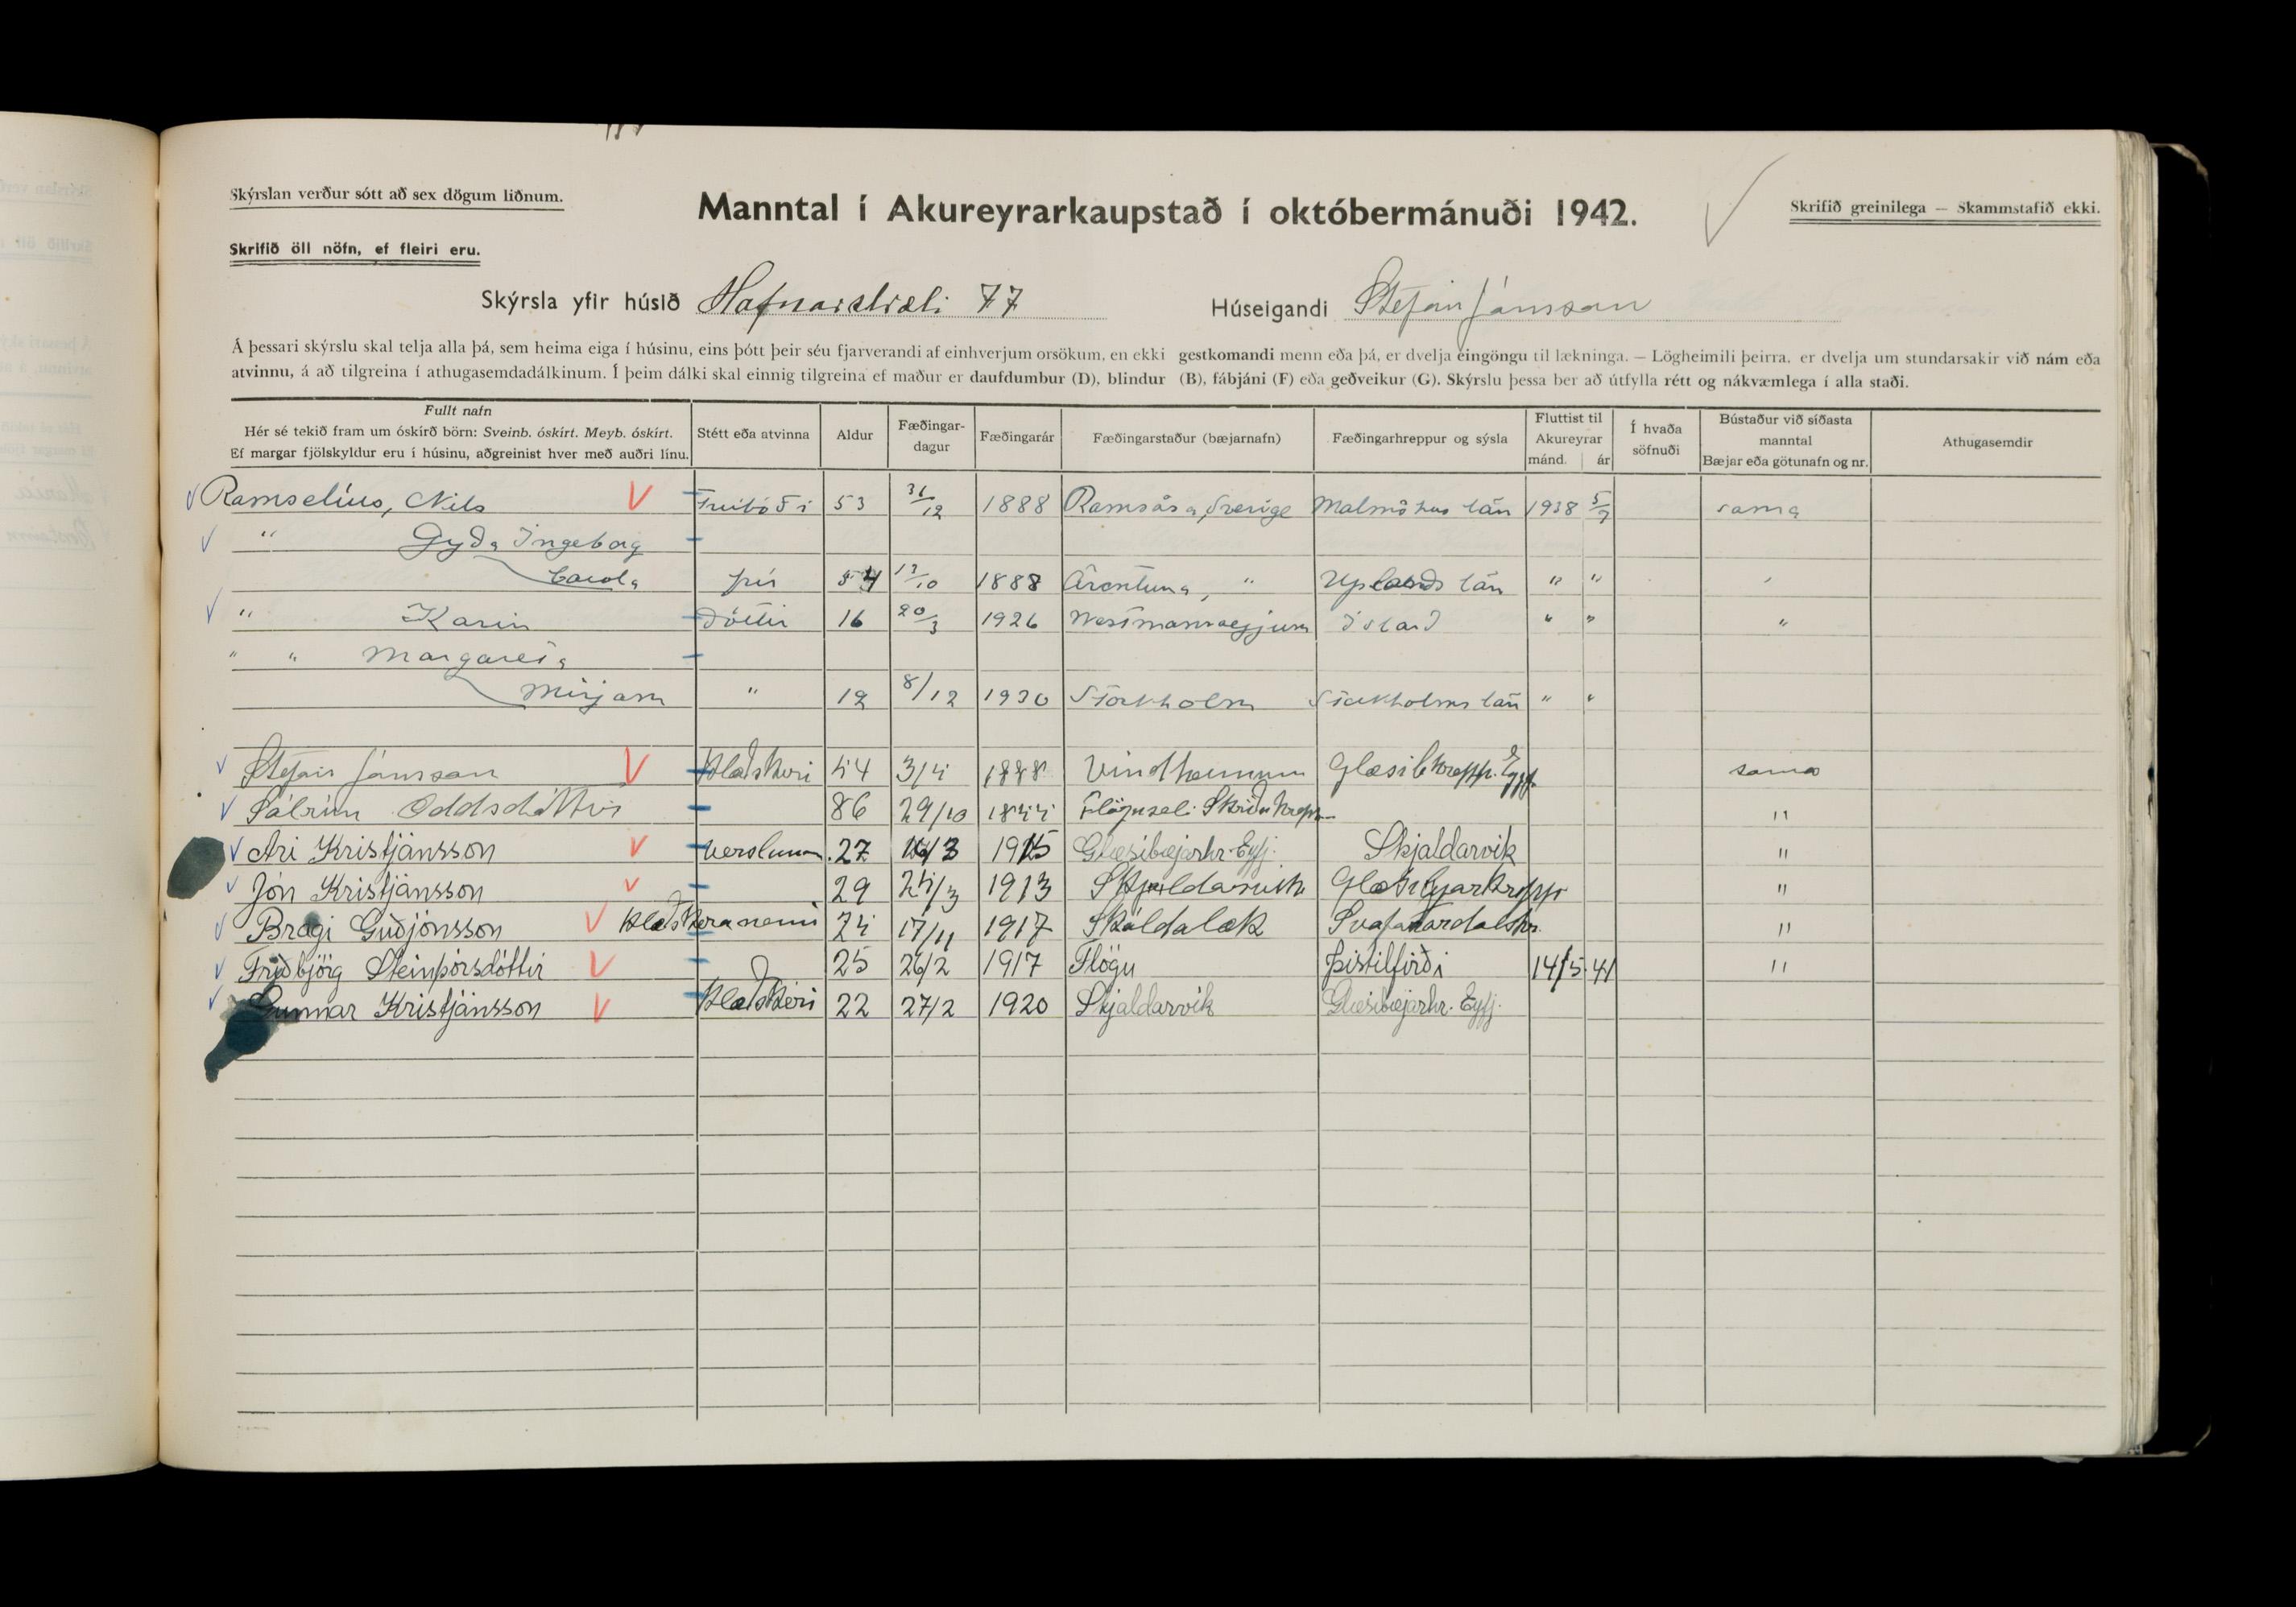 Skýrslan verður sótt að sex dögum liðnum.
Manntal í Akureyrarkaupstað í októbermánuði 1942.
Skrifið greinilega — Skammstafið ekki.
Skrifið öll nöfn, ef fleiri eru.
Skýrsla yfir húsið Hafnarstræti 77 Húseigandi Stefán Jónsson
Á þessari skýrslu skal telja alla þá, sem heima eiga í húsinu, eins þótt þeir séu fjarverandi af einhverjum orsökum, en ekki gestkomandi menn eða þá, er dvelja eingöngu til lækninga. — Lögheimili þeirra, er dvelja um stundarsakir við nám eða
atvinnu, á að tilgreina í athugasemdadálkinum. Í þeim dálki skal einnig tilgreina ef maður er daufdumbur (D), blindur (B), fábjáni (F) eða geðveikur (G). Skýrslu þessa ber að útfylla rétt og nákvæmlega í alla staði.
Fullt nafn
Hér sé tekið fram um óskírð börn: Sveinb. óskírt. Meyb. óskírt.
Ef margar fjölskyldur eru í húsinu, aðgreinist hver með auðri línu.
Stétt eða atvinna
Aldur
Fæðingar-
dagur
Fæðingarár
Fæðingarstaður (bæjarnafn)
Fæðingarhreppur og sýsla
Fluttist til
Akureyrar
mánd. ár
Í hvaða
söfnuði
Bústaður við síðasta
manntal
Bæjar eða götunafn og nr.
Athugasemdir
Ramselíus, Nils Trúboði 53 31/12 1888 Ramsåsa, Sverige Malmöhus län 1938 5/7 sama
" Gyda Ingeborg
Carola frú 54 13/10 1888 Ärentuna, " Uplands län " "
" Karin dóttir 16 20/3 1926 Westmannaeyjum Island " " "
" " Margareta
Mirjam " 12 8/12 1930 Stockholm Stockholms län " "
Stefán Jónsson Klæðskeri 54 3/4 1888 Vindheimum Glæsibhrepp. Eyjf. sama
Sólrún Oddsdóttir 86 29/10 Flöguseli Skriðuhrepp "
Ari Kristjánsson verslunarm. 27 1915 Glæsibæjarhr. Eyfj. Skjaldarvík "
Jón Kristjánsson 29 25/3 1913 Skjaldarvík Glæsibæjarhrepp "
Bragi Guðjónsson Klæðskeranemi 24 17/11 1917 Skáldalæk Svafaðardalshr. "
Friðbjörg Steinþórsdóttir 25 26/2 1917 Flögu Þistilfirði 14/5 41 "
Gunnar Kristjánsson Klæðskeri 22 27/2 1920 Skjaldarvík Glæsibæjarhr. Eyfj.